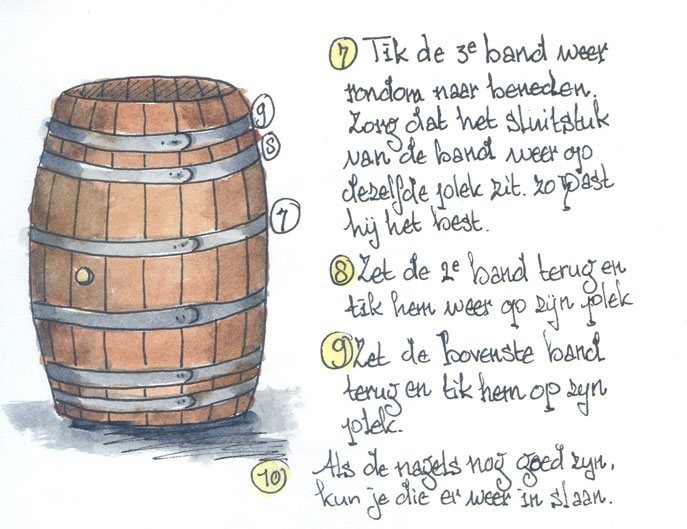 9
8
7
7 Tik de 3e band weer
rondom naar beneden.
Zorg dat het sluitstuk
van de band weer op
dezelfde plek zit. zo past
hij het best.
8 Zet de 2e band terug en
tik hem weer op zijn plek
9 Zet de bovenste band
terug en tik hem op zijn
plek.
10) Als de nagels nog goed zijn,
kun je die er weer in slaan.